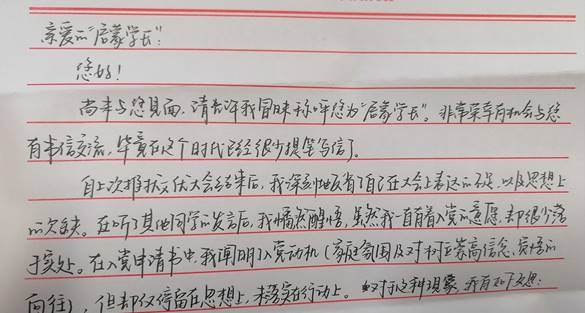 亲爱的“启蒙学长”:
您好!
尚未与您见面,请允许我冒昧称呼您为“启蒙学长”。非常荣幸有机会与您
有书信交流,毕竟在这个时代已经很少提笔写信了。
自上次推优大会结束后,我深刻地反省了自己在大会上表达的不足,以及思想上
的欠缺。在听了其他同学的发言后,我幡然醒悟,虽然我一直有着入党的意愿,却很少落
于实处。在入党申请书中,我阐明了入党动机(家庭氛围及对崇高信念、
向往),但却仅停留在思想上,未落实在行动上。对于这种现象,我有如下反思: